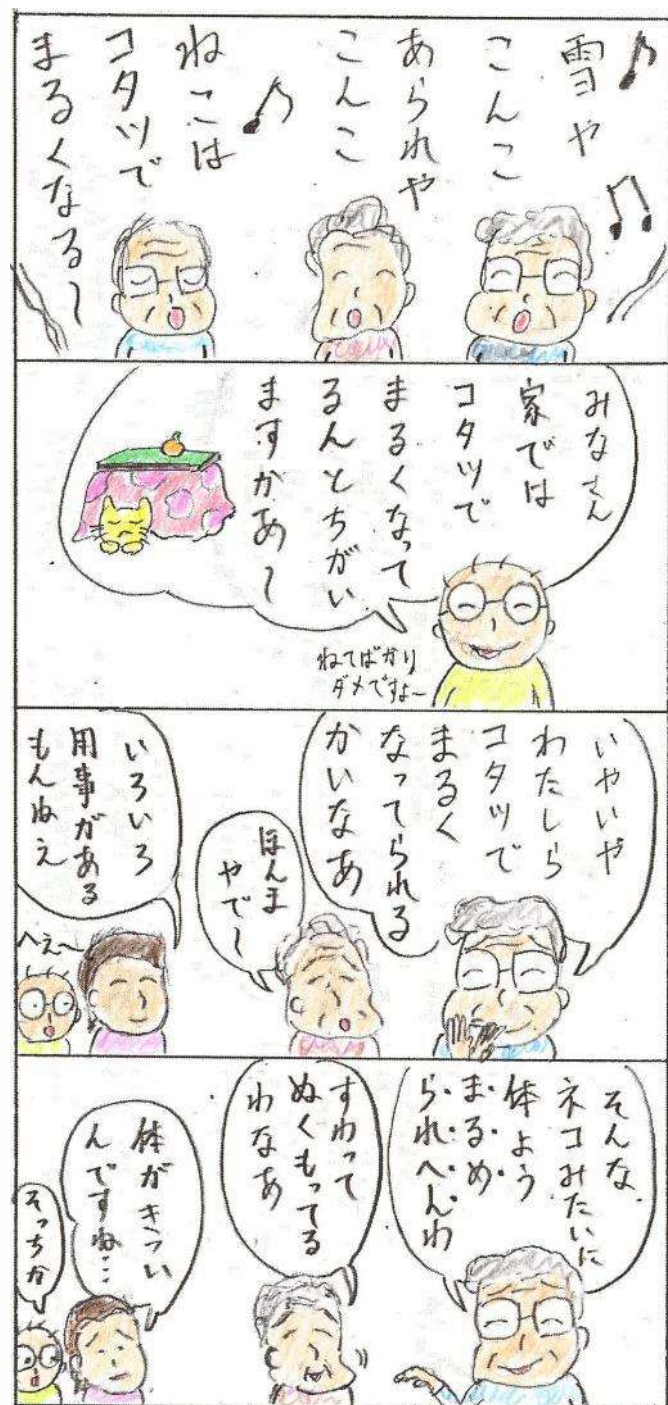 雪や
こんこ
あられや
こんこ
ねこは
コタツで
まるくなる～
みなさん
家では
コタツで
まるくなって
るんとちがい
ますかあ～
ねてばかり
ダメですよ～
いやいや
わたしら
コタツで
まるく
なってられる
かいなあ
ほんま
やで～
いろいろ
用事がある
もんねえ
へえ～
そんな
ネコみたいに
体よう
まるめ
られへんわ
すわって
ぬくもってる
わなあ
体がきつい
んですね…
そっちか